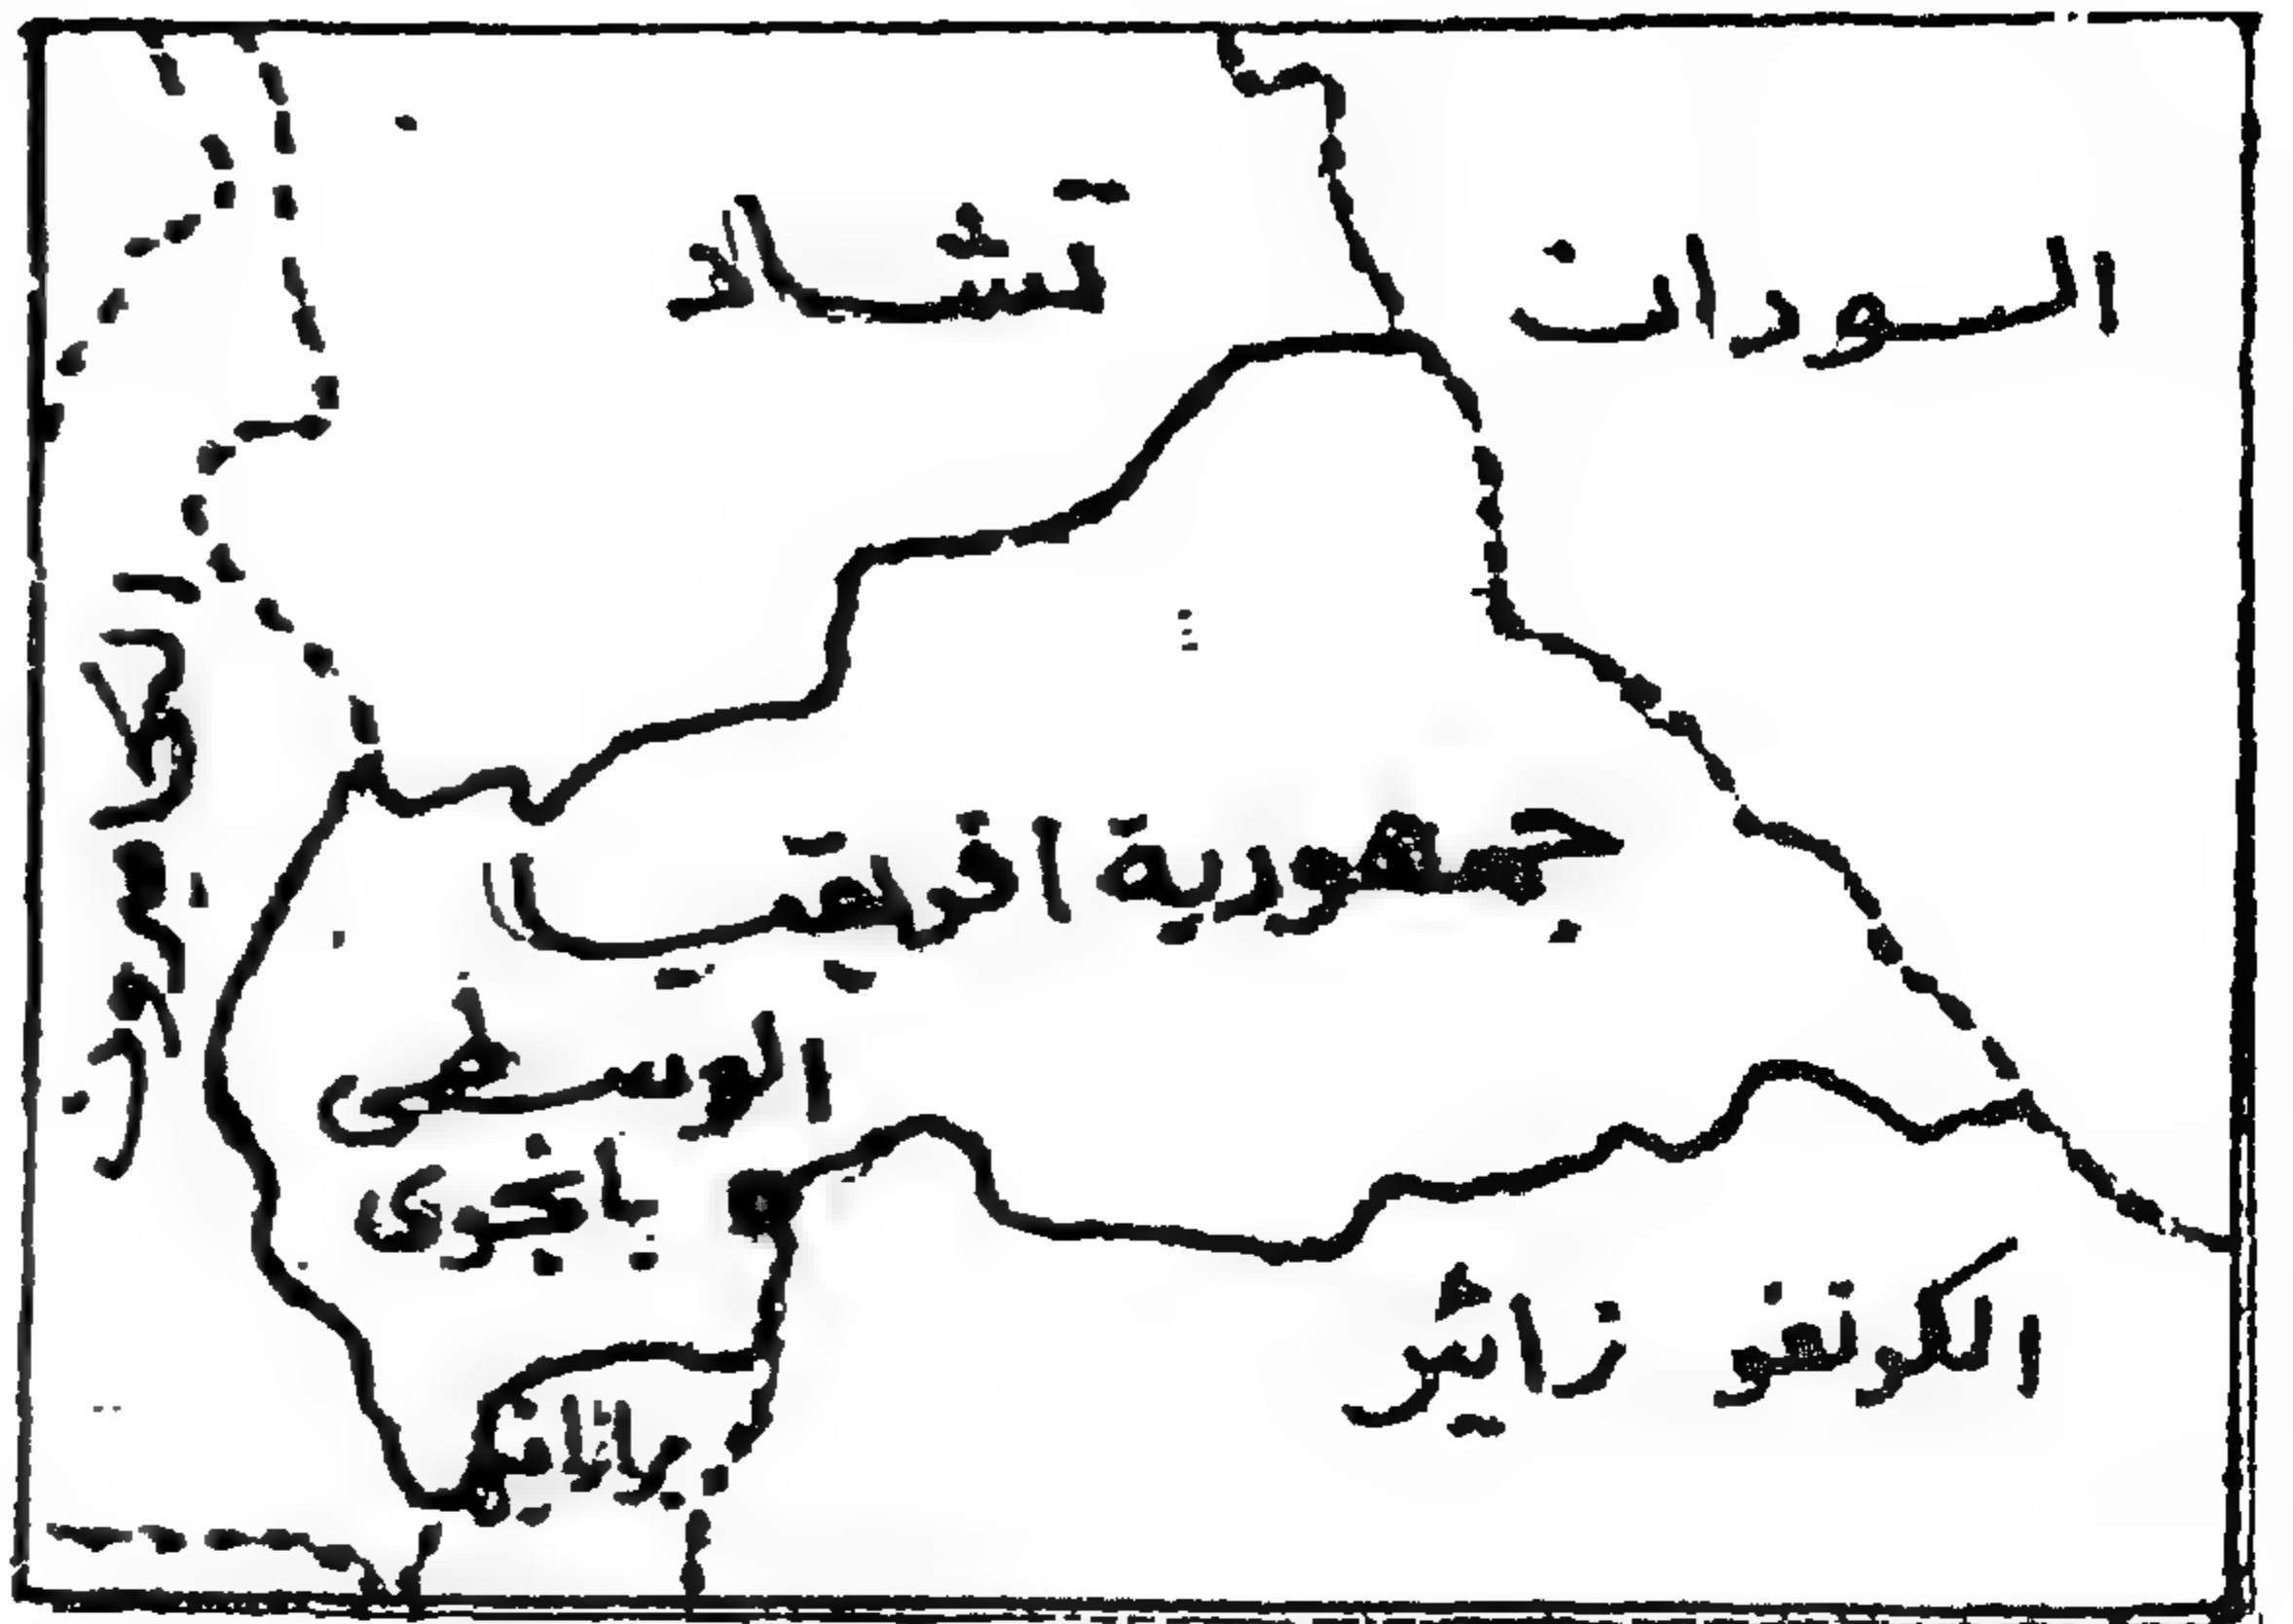 تشاد
السودان
الكاميرون
جمهورية افريقيا
الوسطى
بانجوى
الكونغو زائير